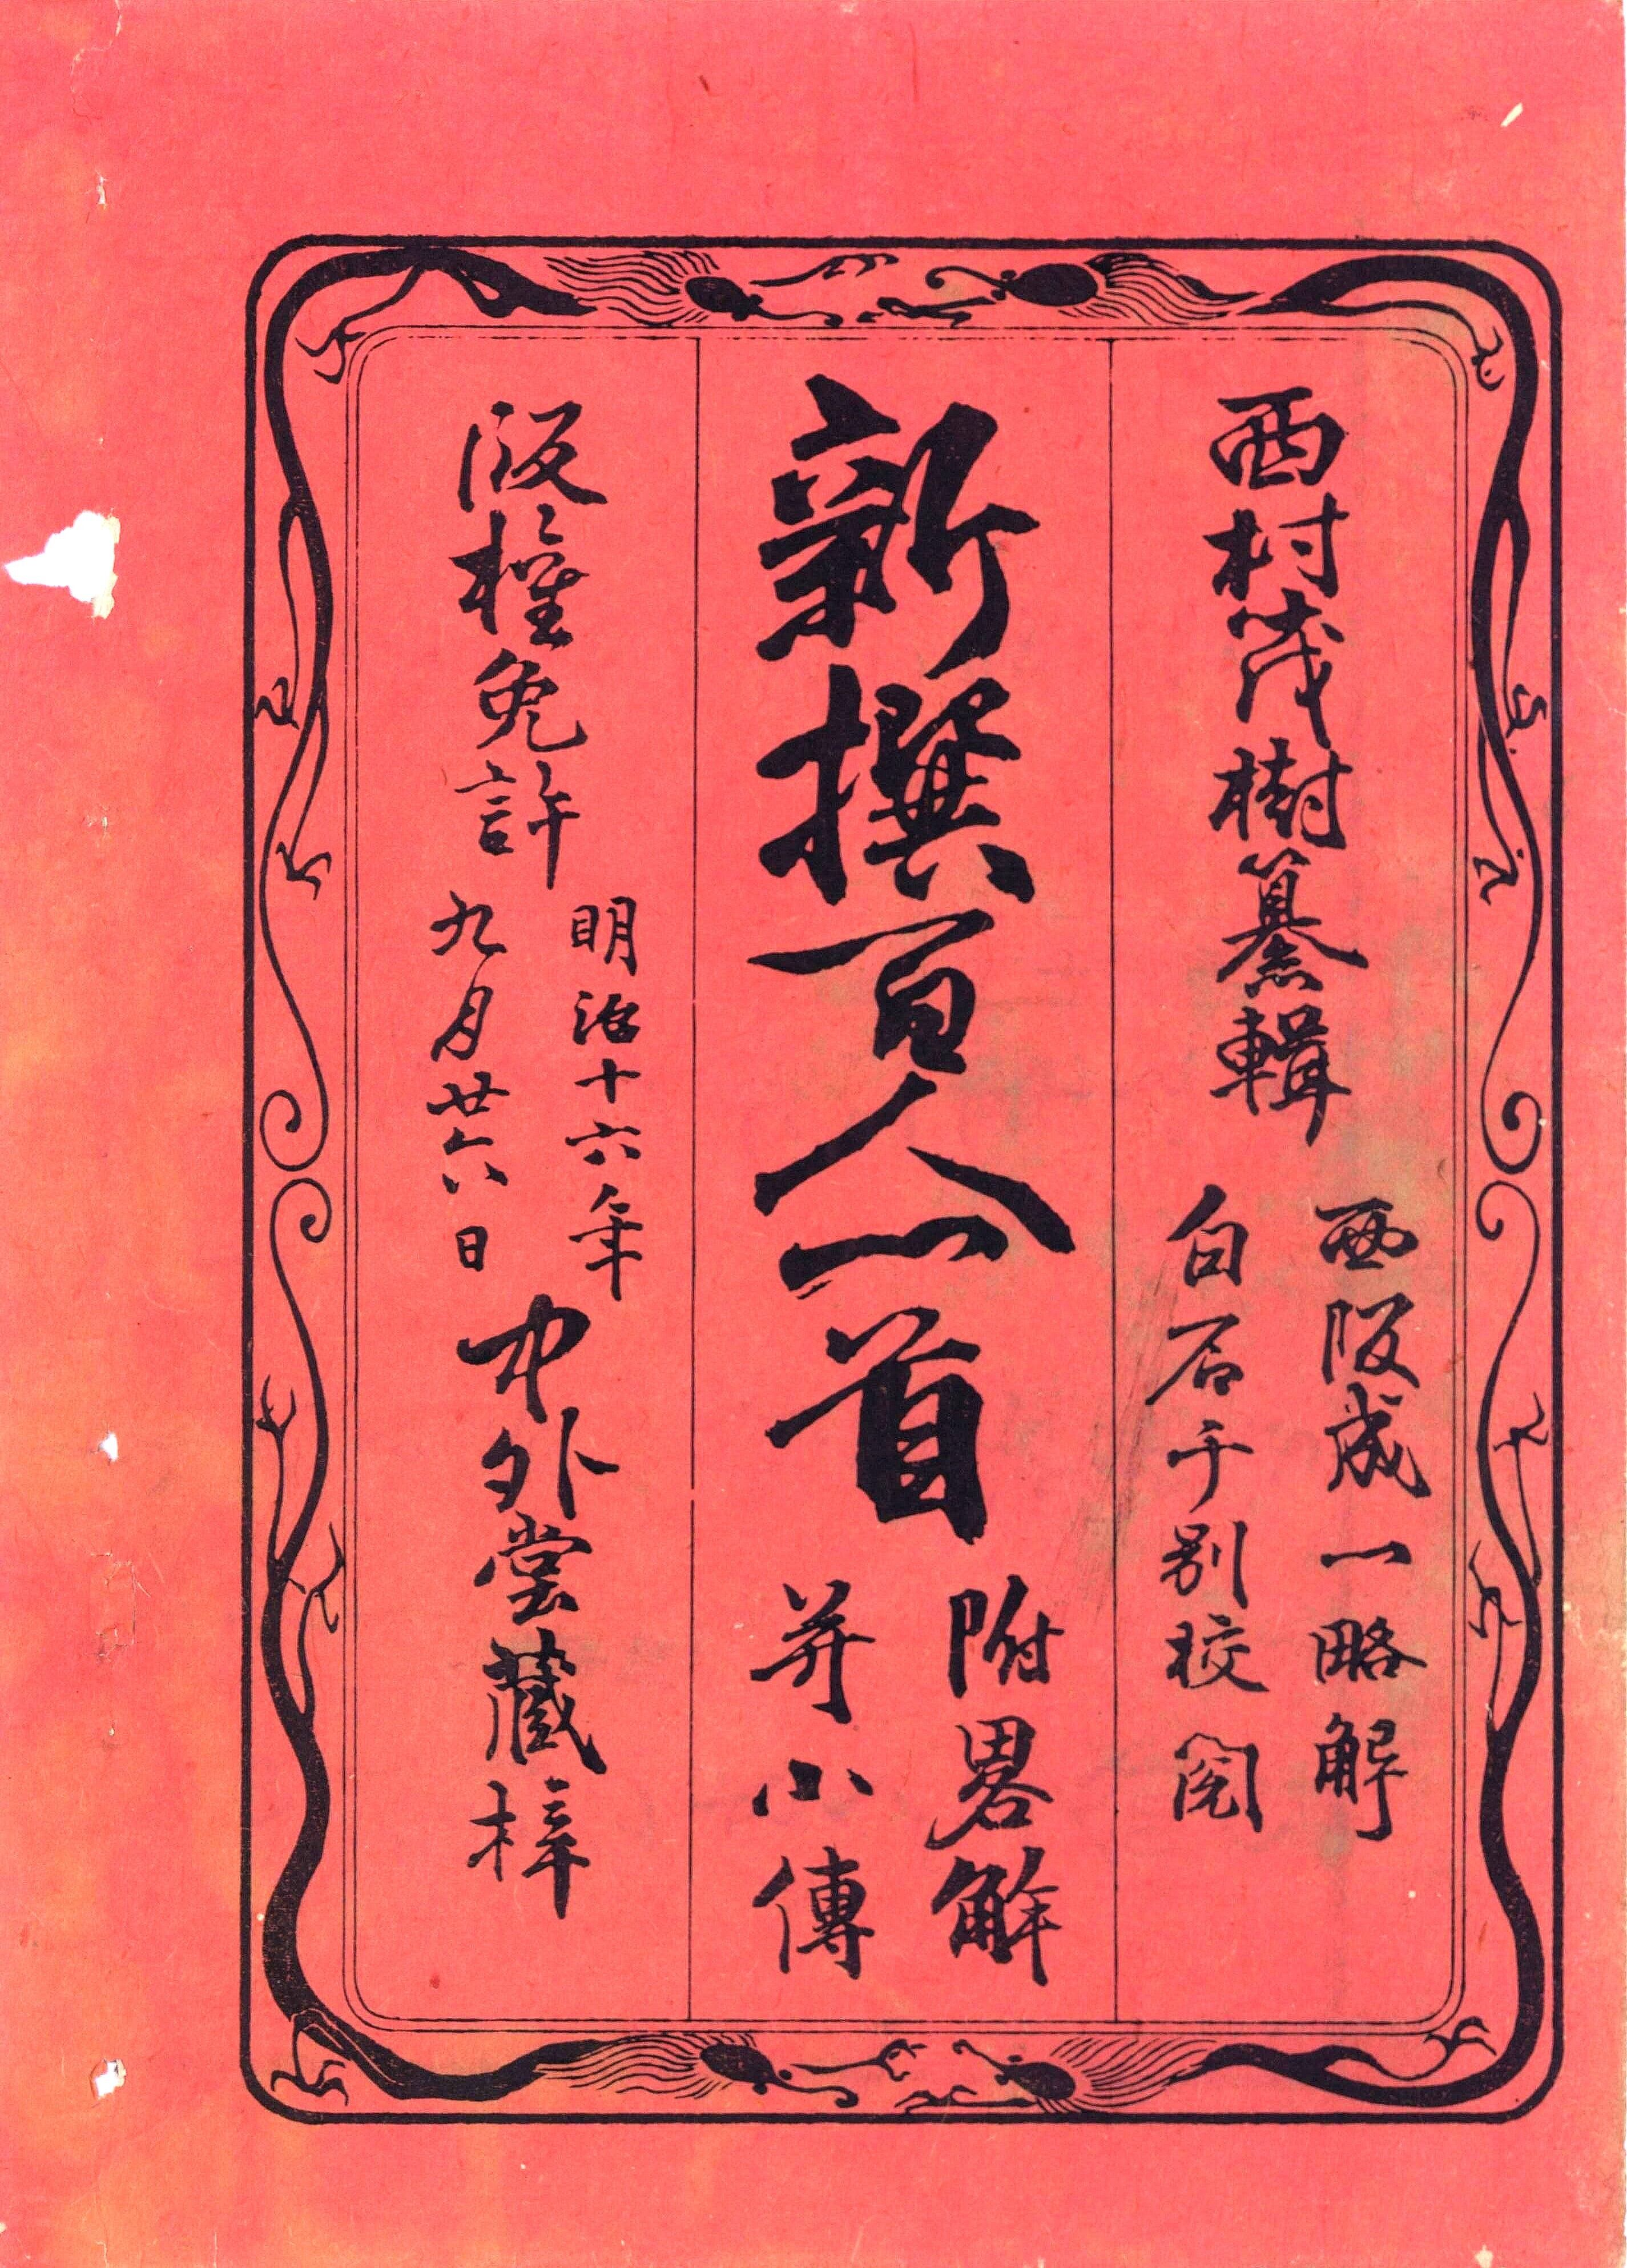 西村茂樹纂輯
西阪成一略解
白石千別校閲
新撰百人一首
附畧解
并小傳
版權免許
明治十六年
九月廿六日
中外堂藏梓